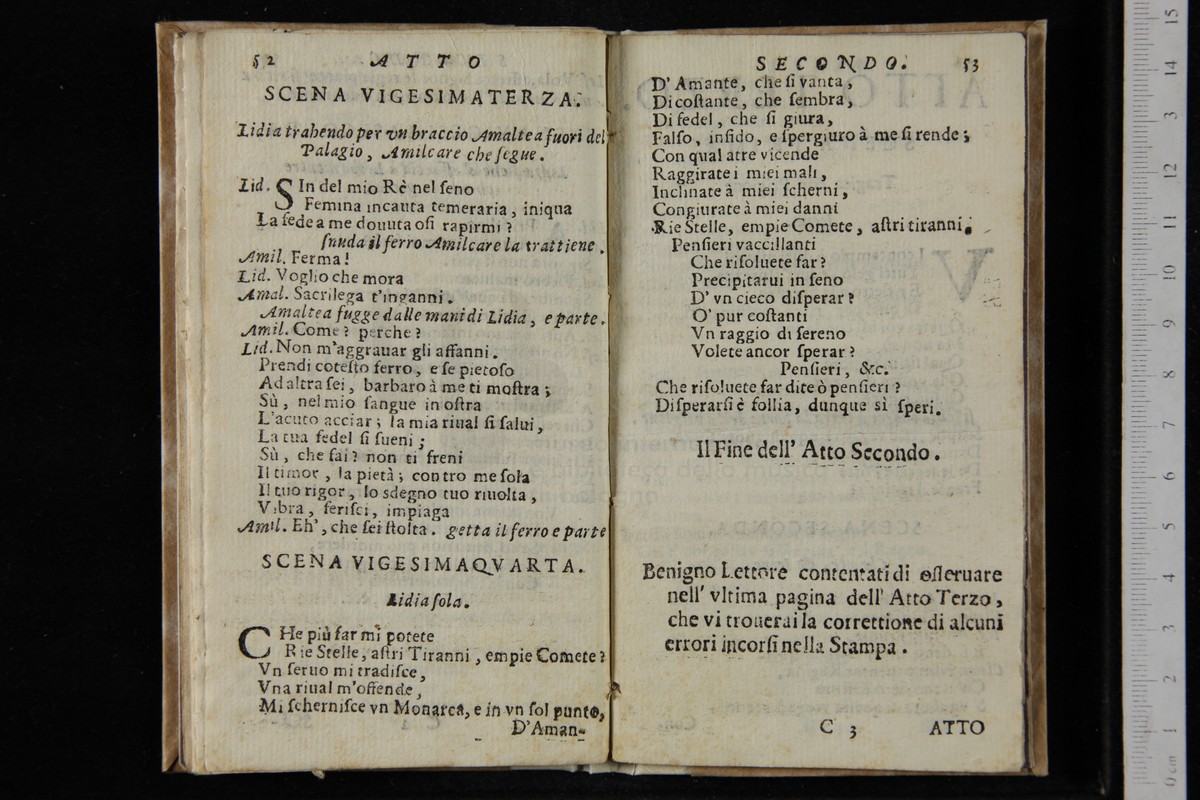 52 ATTO
SCENA VIGESIMATERZA.
Lidia trahendo per vn braccio Amaltea fuori del
Palagio, Amilcare che ſegue.
Lid. SIn del mio Rè nel ſeno
Femina incauta temeraria, iniqua
La fede a me douuta oſi rapirmi?
ſnuda il ferro Amilcare la trattiene.
Amil. Ferma!
Lid. Voglio che mora
Amal. Sacrilega t'inganni.
Amaltea fugge dalle mani di Lidia, e parte.
Amil. Come? perche?
Lid. Non m'aggrauar gli affanni.
Prendi coteſto ferro, e ſe pietoſo
Ad altra ſei, barbaro à me ti moſtra;
Sù, nel mio ſangue inoſtra
L'acuto acciar; la mia riual ſi ſalui,
La tua fedel ſi ſueni;
Sù, che fai? non ti freni
Il timor, la pietà; contro me ſola
Il tuo rigor, lo sdegno tuo riuolta,
Vibra, feriſci, impiaga
Amil. Eh', che ſei ſtolta. getta il ferro e parte
SCENA VIGESIMAQVARTA.
Lidia ſola.
CHe più far mi potete
Rie Stelle, aſtri Tiranni, empie Comete?
Vn ſeruo mi tradiſce,
Vna riual m'offende,
Mi ſcherniſce vn Monarca, e in vn ſol punto,
D'Aman-
SECONDO. 53
D'Amante, che ſi vanta,
Di coſtante, che ſembra,
Di fedel, che ſi giura,
Falſo, infido, e ſpergiuro à me ſi rende;
Con qual atre vicende
Raggirate i miei mali,
Inclinate à miei ſcherni,
Congiurate à miei danni
Rie Stelle, empie Comete, aſtri tiranni.
Penſieri vaccillanti
Che riſoluete far?
Precipitarui in ſeno
D'vn cieco diſperar?
O' pur coſtanti
Vn raggio di ſereno
Volete ancor ſperar?
Penſieri, &c.
Che riſoluete far dite ò penſieri?
Diſperarſi è follia, dunque sì ſperi.
Il Fine dell' Atto Secondo.
Benigno Lettore contentati di oſſeruare
nell' vltima pagina dell' Atto Terzo,
che vi trouerai la correttione di alcuni
errori incorſi nella Stampa.
C 3 ATTO